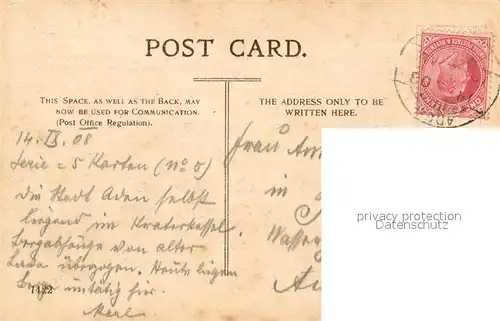 POST CARD.
THIS SPACE, AS WELL AS THE BACK, MAY
NOW BE USED FOR COMMUNICATION.
(Post Office Regulation).
THE ADDRESS ONLY TO BE
WRITTEN HERE.
14. IX. 08
Serie = 5 Karten (No 5)
Die Stadt Aden selbst
liegend im Kraterkessel
Bergabhänge von alter
Lava überzogen. Heute liegen
untätig hier.
1122
Frau
in
privacy protection
Datenschutz